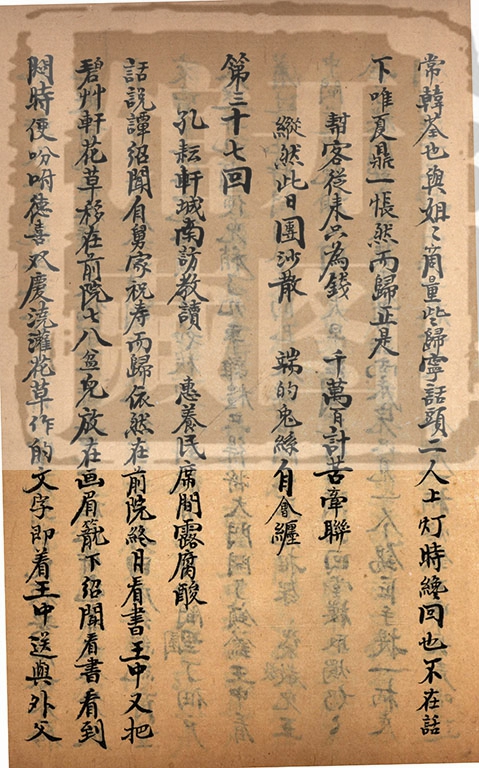 常韓荃也與姐〻商量些歸寧話頭二人上灯時纔回也不在話
下唯夏鼎一悵然而歸正是
幇客從来只為錢 千萬百計苦牽聯
縱然此日團沙散 端的兔絲自會纏
第三十七回
孔耘軒城南訪教讀 惠養民席間露腐酸
話說譚紹聞自舅家祝寿而歸依然在前院終日看書王中又把
碧艸軒花草移在前院七八盆児放在画眉籠下紹聞看書看到
悶時便吩咐德喜双慶澆灌花草作的文字即着王中送與外父